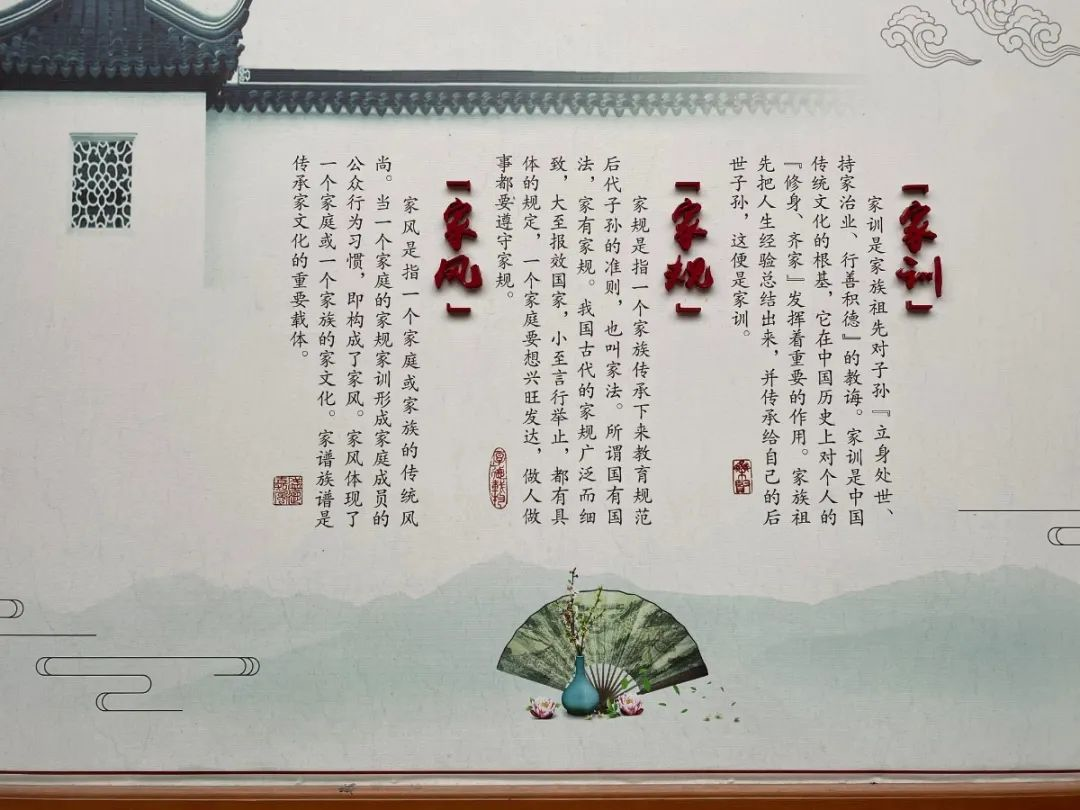 「家训」
家训是家族祖先对子孙『立身处世、
持家治业、行善积德』的教诲。家训是中国
传统文化的根基，它在中国历史上对个人的
『修身、齐家』发挥着重要的作用。家族祖
先把人生经验总结出来，并传承给自己的后
世子孙，这便是家训。
「家规」
家规是指一个家族传承下来教育规范
后代子孙的准则，也叫家法。所谓国有国
法，家有家规。我国古代的家规广泛而细
致，大至报效国家，小至言行举止，都有具
体的规定，一个家庭要想兴旺发达，做人做
事都要遵守家规。
厚德载物
「家风」
家风是指一个家庭或家族的传统风
尚。当一个家庭的家规家训形成家庭成员的
公众行为习惯，即构成了家风。家风体现了
一个家庭或一个家族的家文化。家谱族谱是
传承家文化的重要载体。